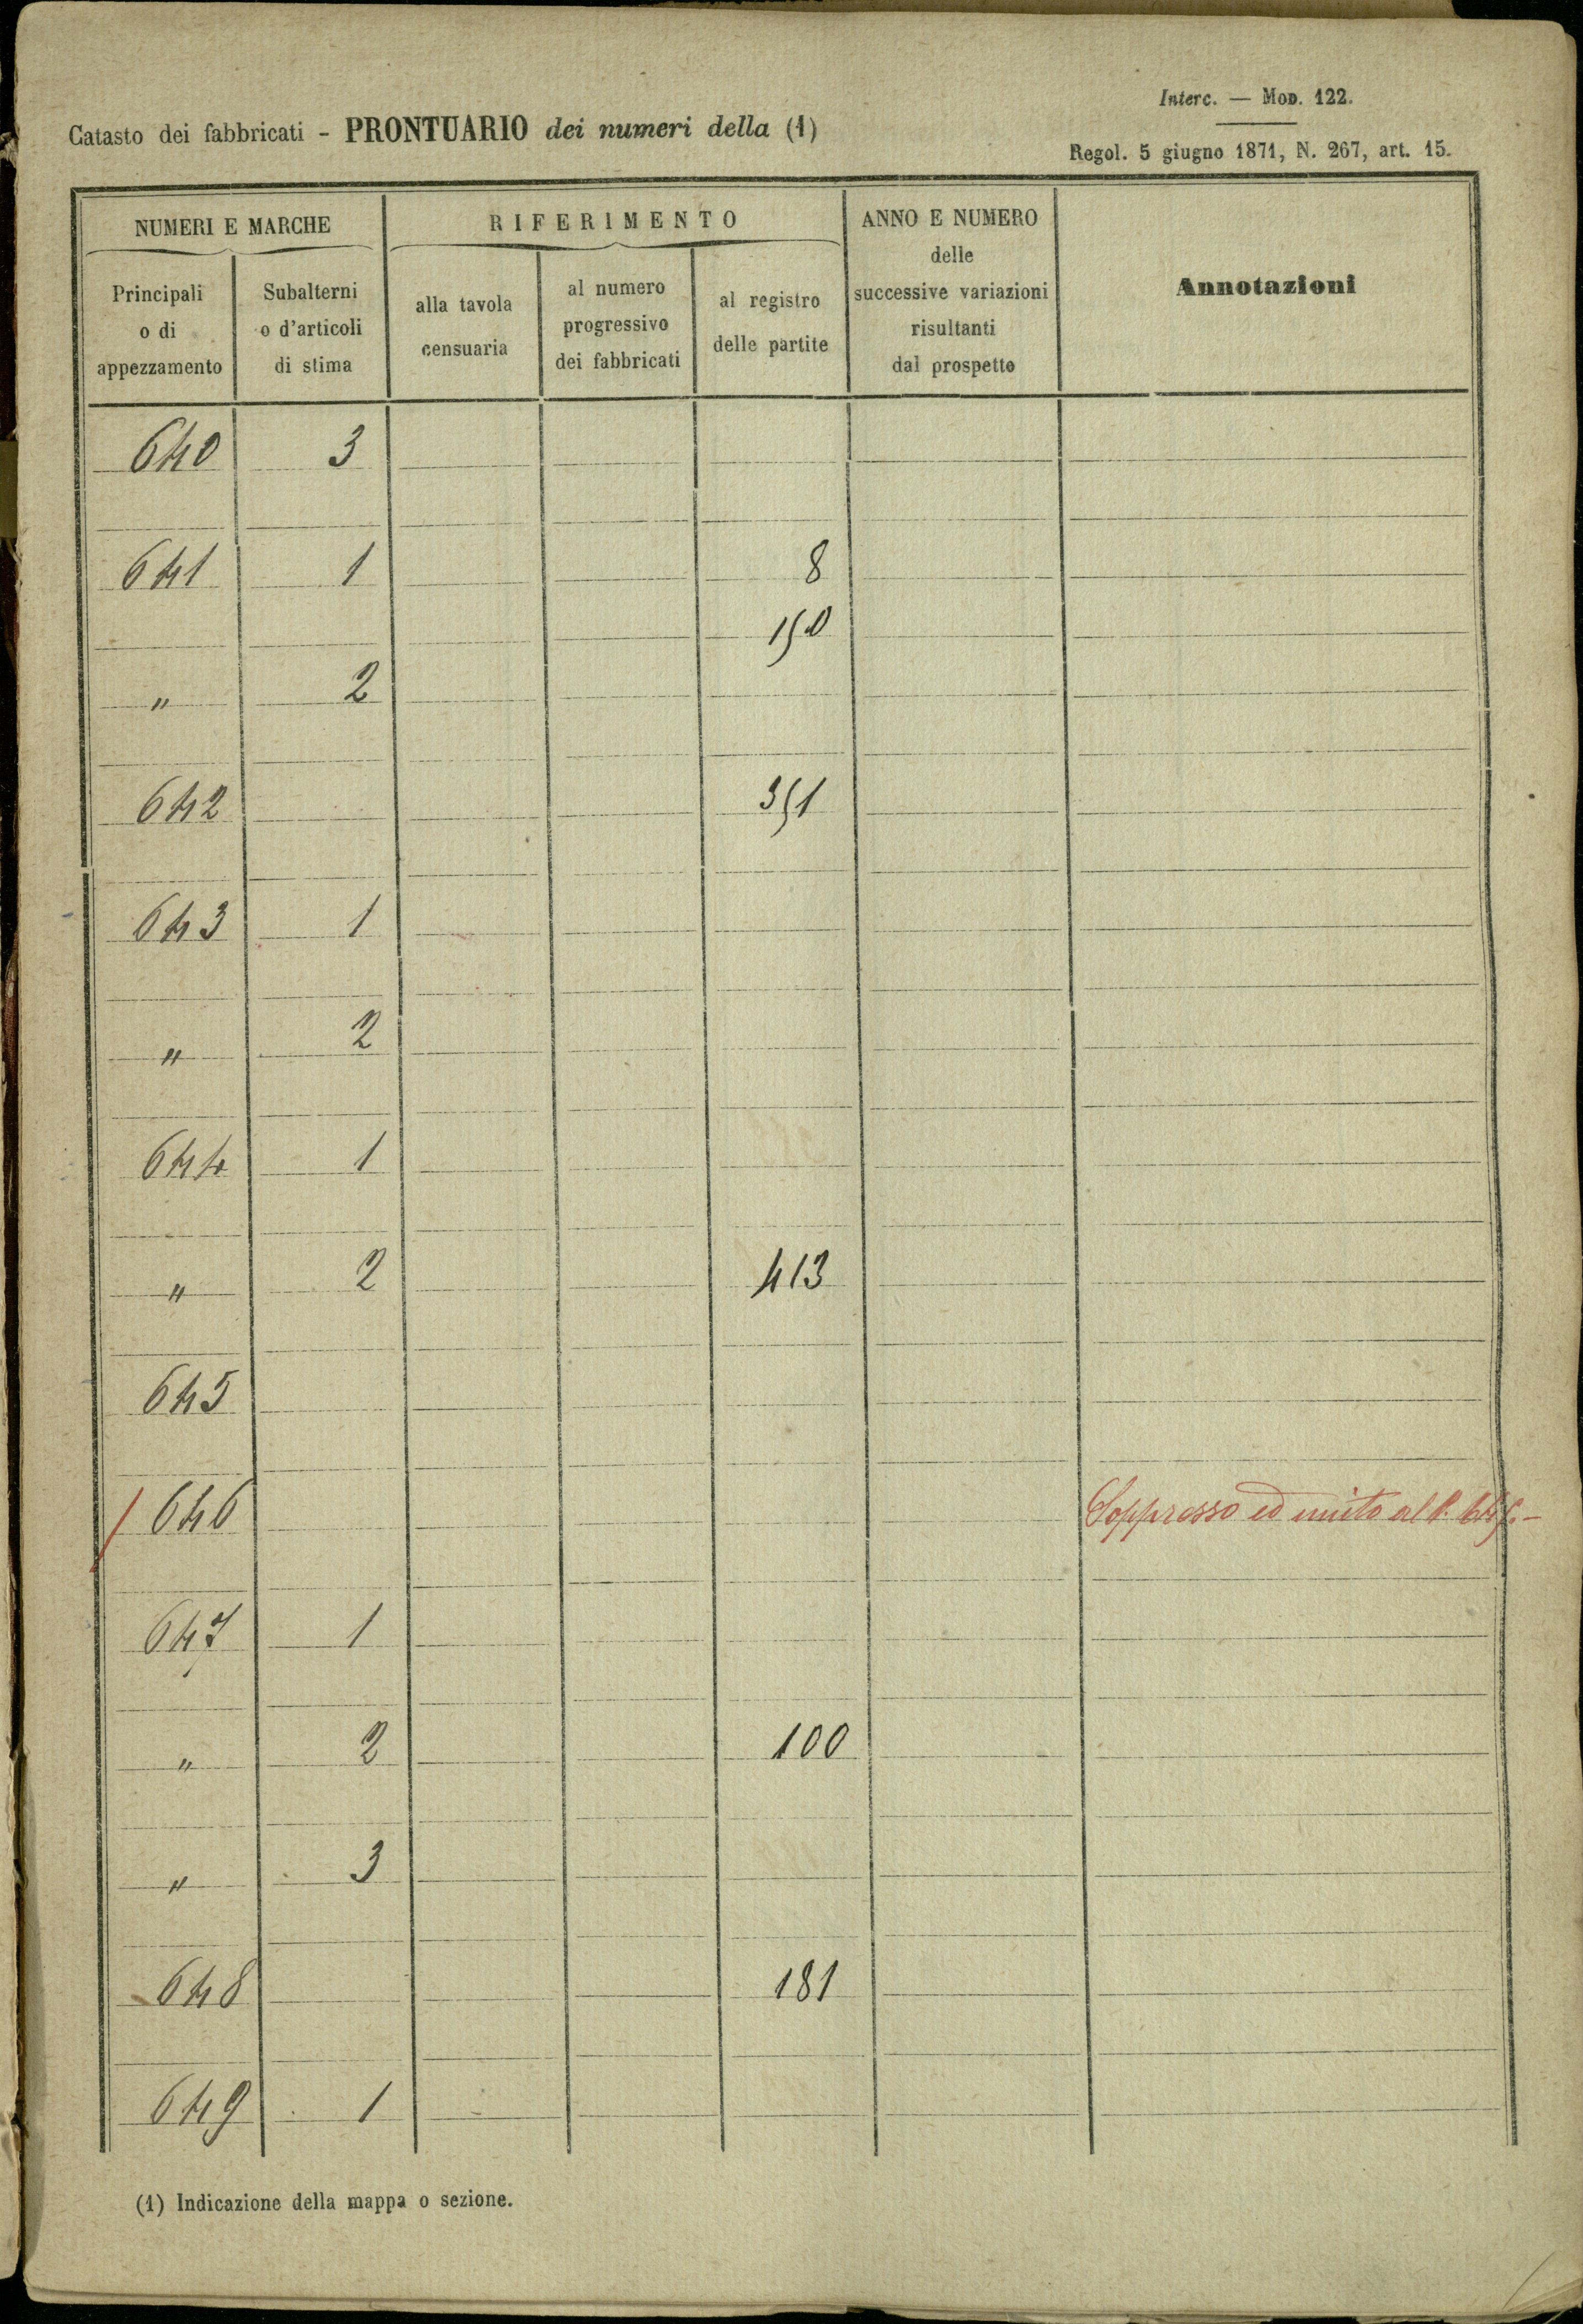 Interc. — Mod. 122.
Catasto dei fabbricati - PRONTUARIO dei numeri della (1)
Regol. 5 giugno 1871, N. 267, art. 15.
NUMERI E MARCHE
RIFERIMENTO
ANNO E NUMERO
delle
successive variazioni
risultanti
dal prospetto
Annotazioni
Principali
o di
appezzamento
Subalterni
o d'articoli
di stima
alla tavola
censuaria
al numero
progressivo
dei fabbricati
al registro
delle partite
640 3
641 1 8
150
" 2
642 351
643 1
" 2
644 1
" 2 413
645
646 Soppresso ed unito al
647 1
" 2 100
" 3
648 181
649 1
(1) Indicazione della mappa o sezione.